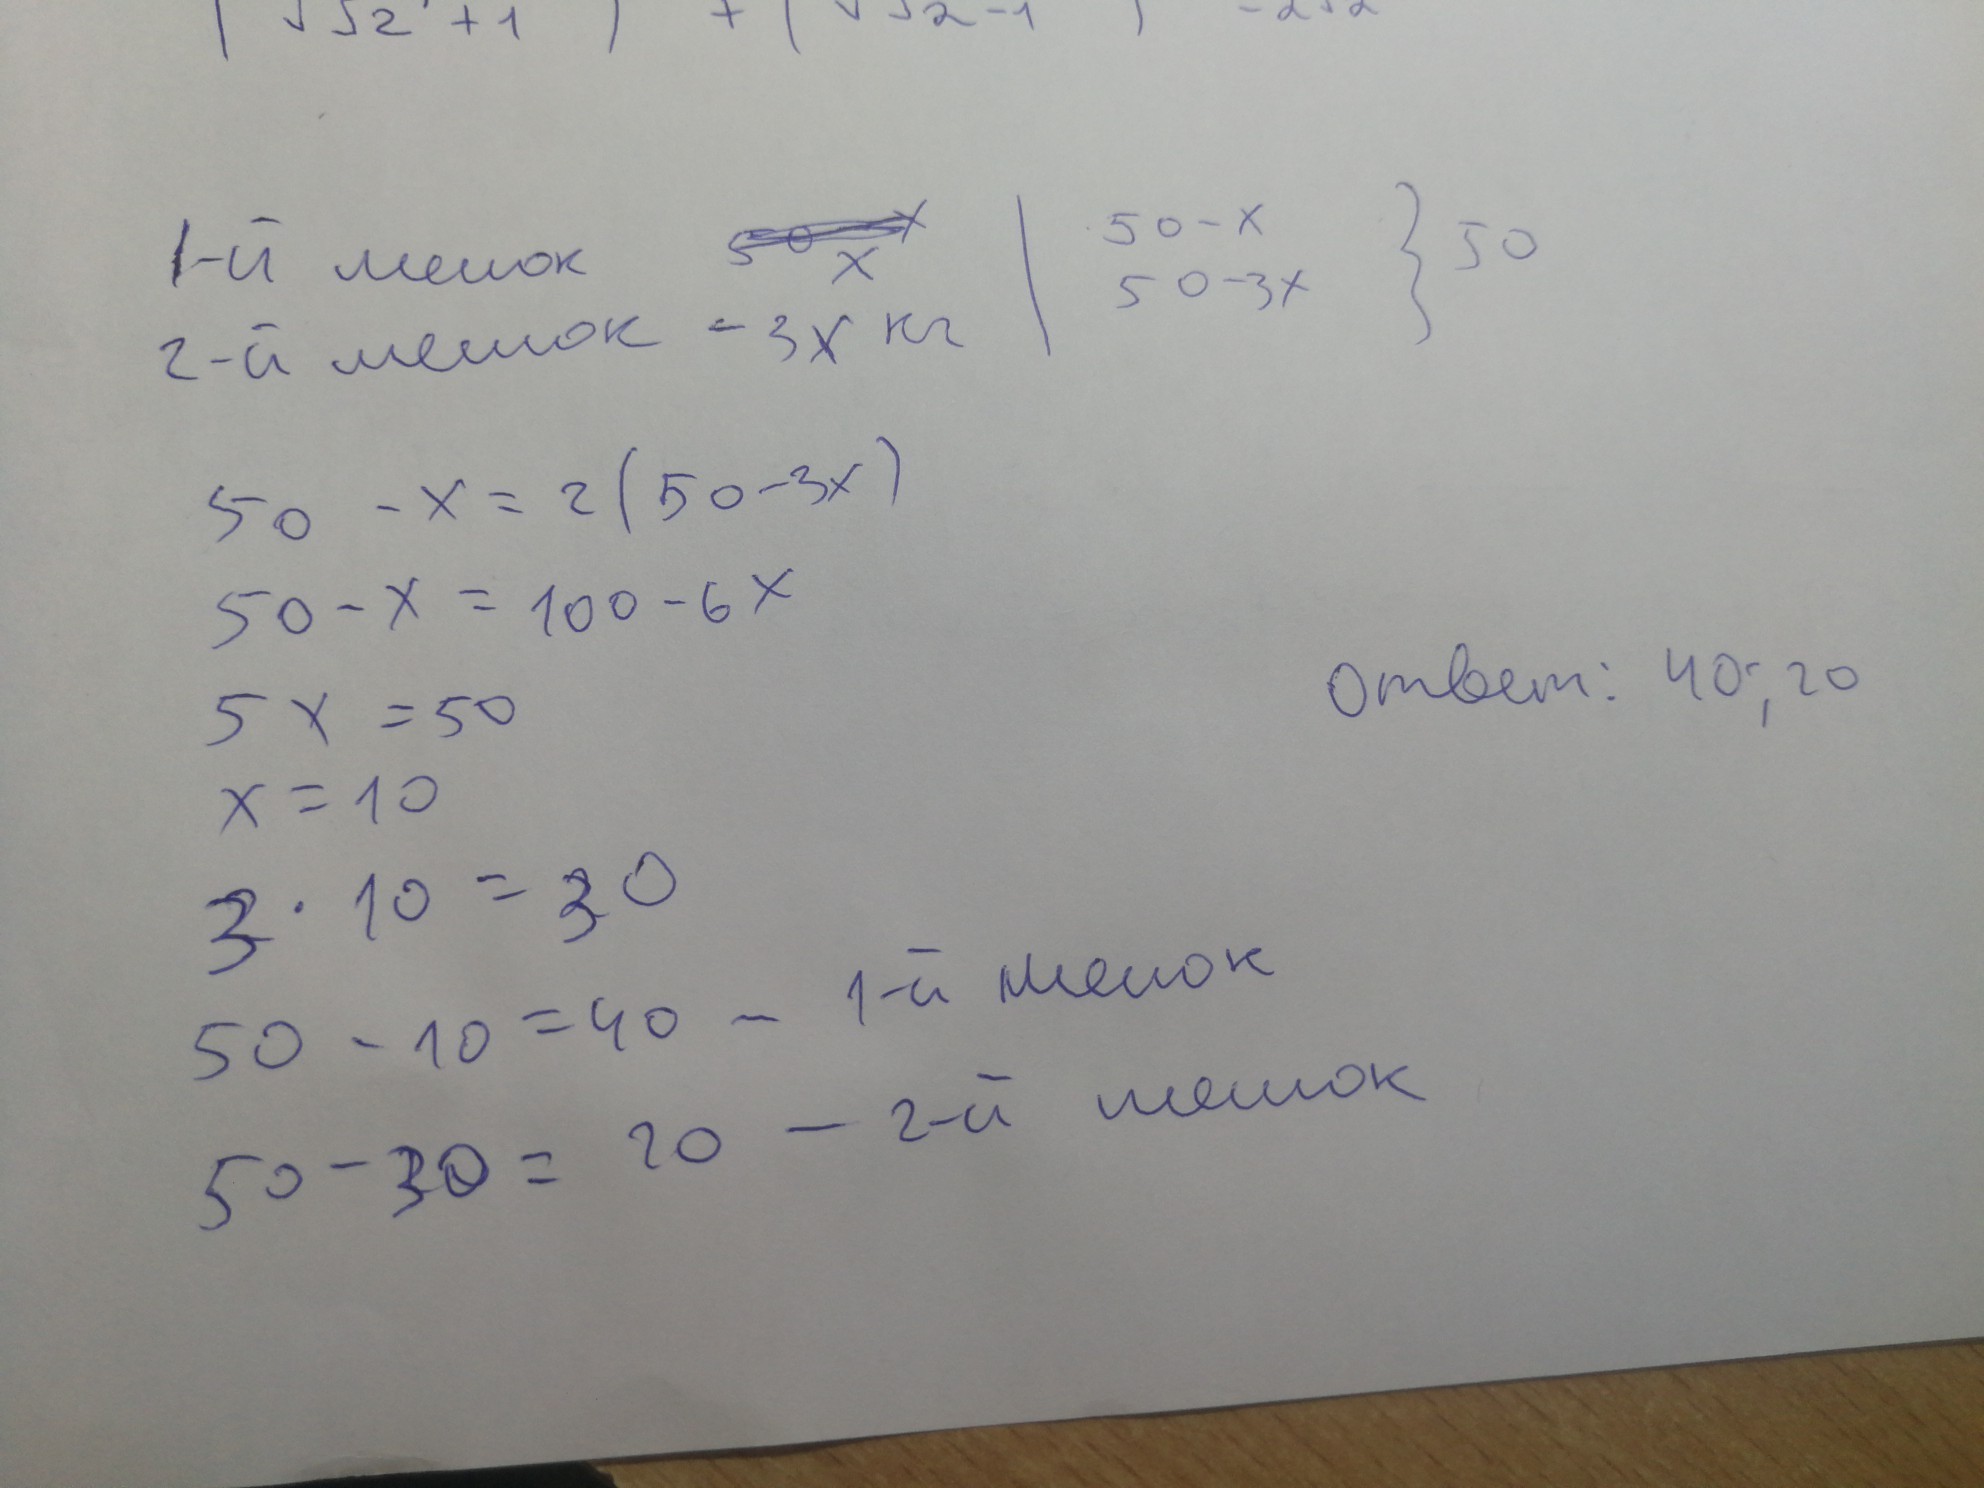 (√√2 + 1 ) + (√√2 - 1 ) - 2√2
1-й мешок x | 50 - x } 50
2-й мешок - 3x кг | 50 - 3x
50 - x = 2(50 - 3x)
50 - x = 100 - 6x
5x = 50
x = 10
3 · 10 = 30
50 - 10 = 40 - 1-й мешок
50 - 30 = 20 - 2-й мешок
Ответ: 40; 20